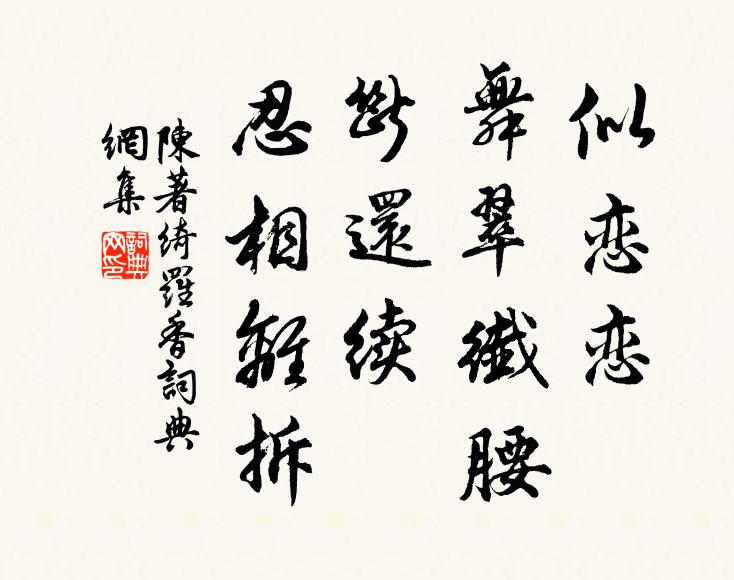 似恋恋
舞翠纖腰
斷還续
忍相離拆
陳著綺羅香詞典
網集
詞典网印